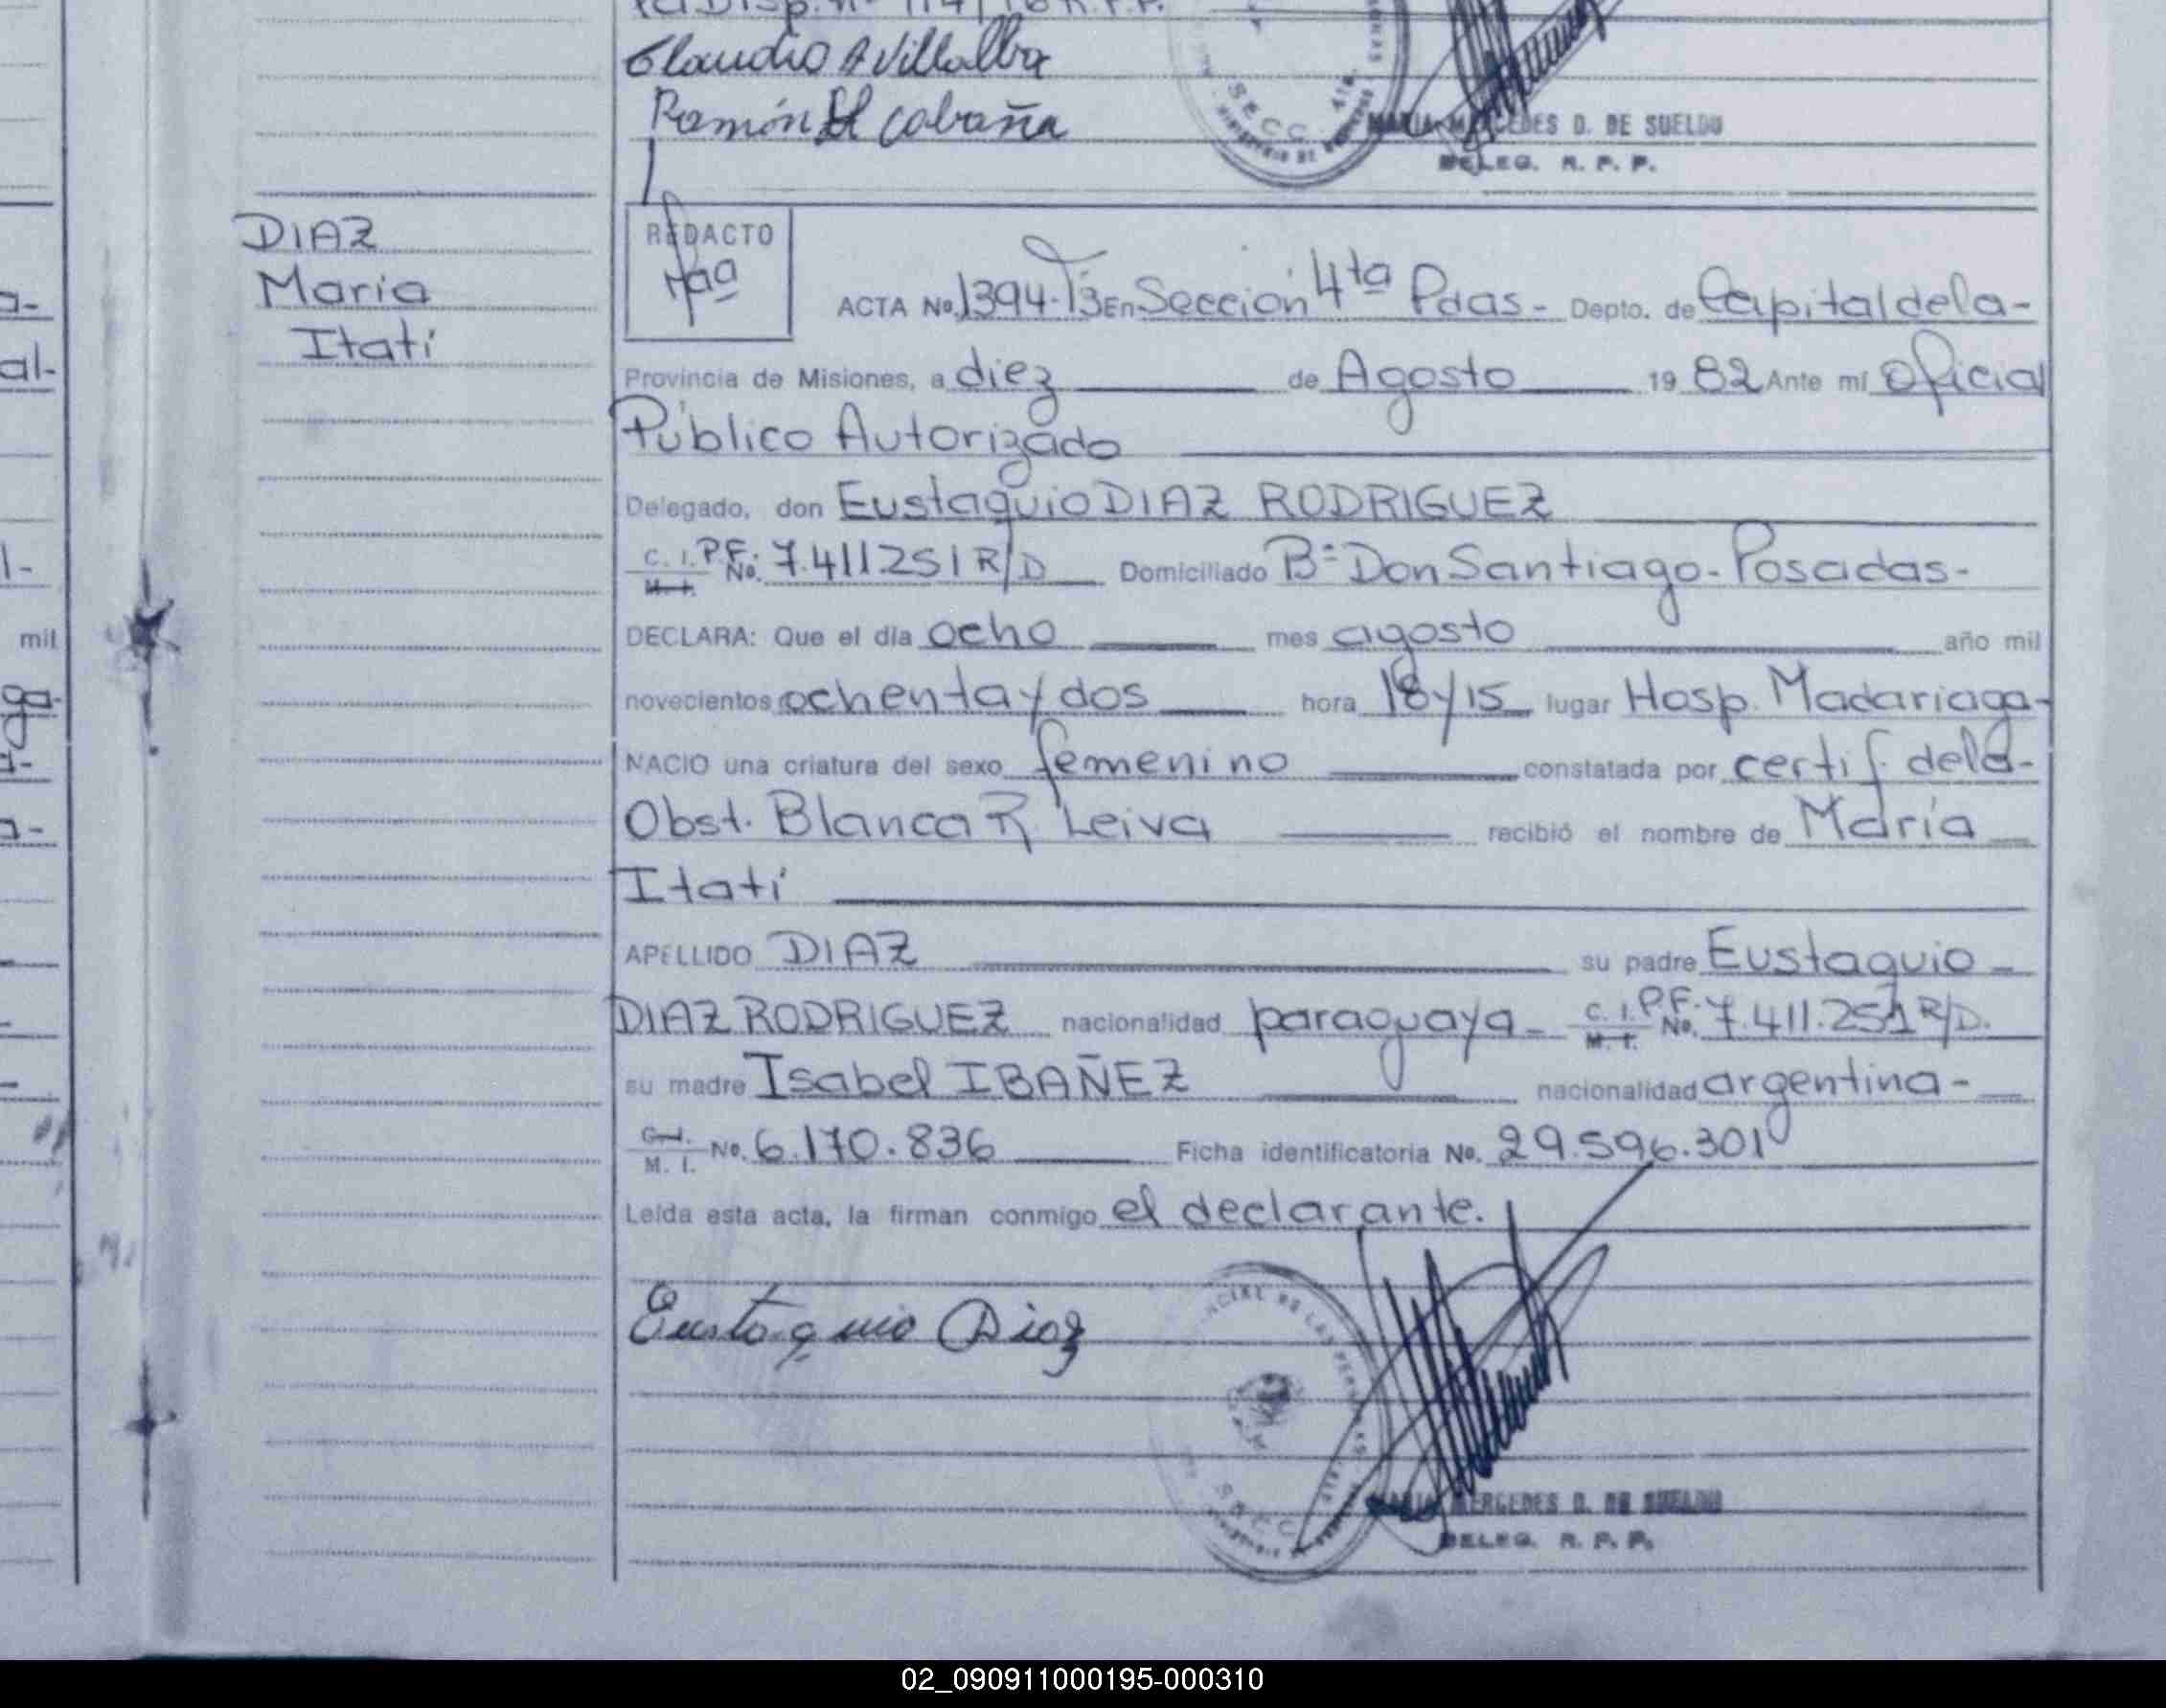 Claudio A Villalba
Ramón El cabaña
MARIA MERCEDES D. DE SUELDO
DELEG. R. P. P.
DIAZ
María
Itatí
REDACTO
ACTA No. 1394-T3 En Sección 4ta Pdas- Depto. de Capital de la-
Provincia de Misiones, a diez de Agosto 1982 Ante mí Oficial
Público Autorizado
Delegado, don Eustaquio DIAZ RODRIGUEZ
C. I. P.F. No. 7.411251 R/D Domiciliado B= Don Santiago-Posadas-
M. I.
DECLARA: Que el día ocho mes agosto año mil
novecientos ochenta y dos hora 18 y 15 lugar Hosp. Madariaga-
NACIO una criatura del sexo femenino constatada por certif. de la-
Obst. Blanca R. Leiva recibió el nombre de María
Itatí
APELLIDO DIAZ su padre Eustaquio
DIAZ RODRIGUEZ nacionalidad paraguaya- C. I. P.F. No. 7.411.251 R/D.
M. I.
su madre Isabel IBAÑEZ nacionalidad argentina-
C. I. No. 6.170.836 Ficha identificatoria No. 29.596.301
M. I.
Leída esta acta, la firman conmigo el declarante.
Eustaquio Diaz
MARIA MERCEDES D. DE SUELDO
DELEG. R. P. P.
mil
02_090911000195-000310